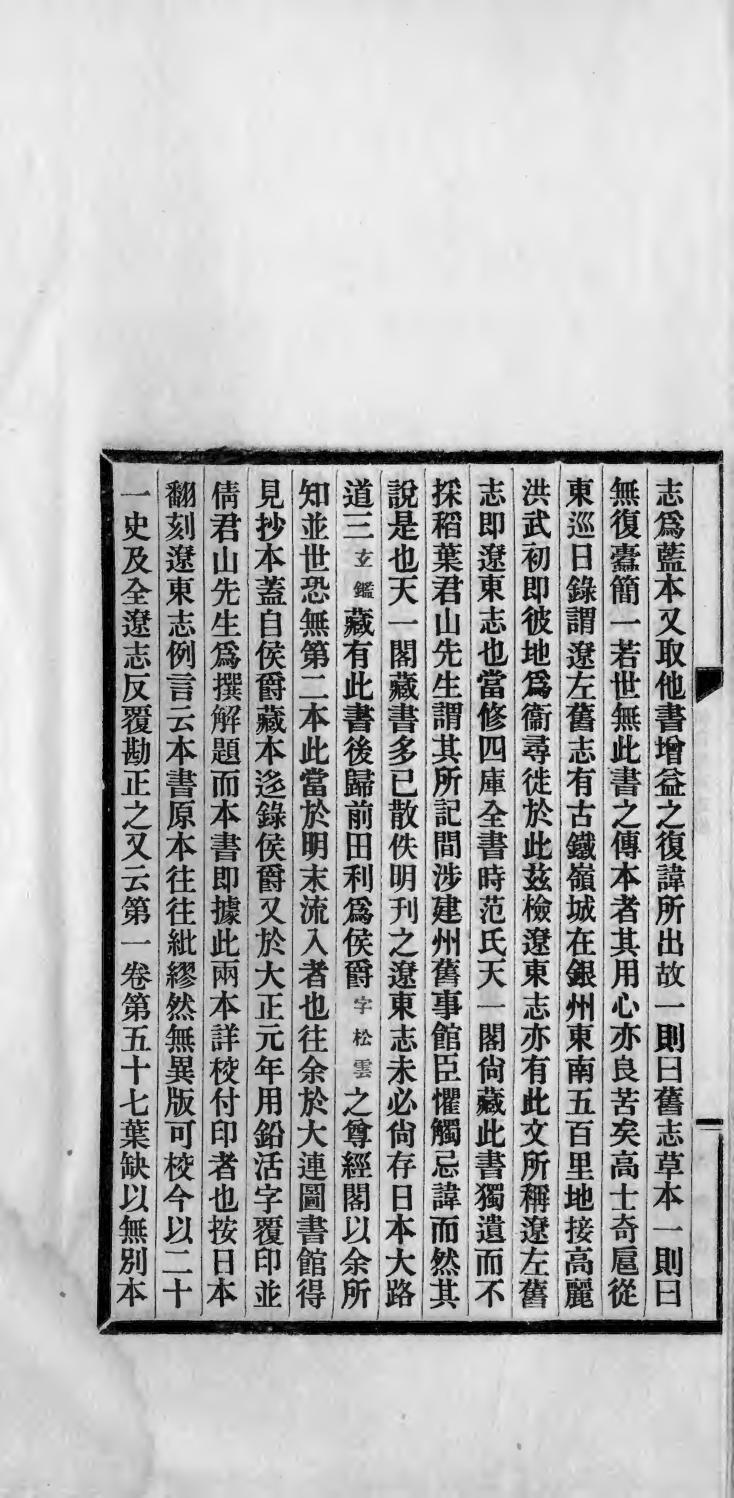 志爲藍本又取他書增益之復諱所出故一則曰舊志草本一則曰
無復蠹簡一若世無此書之傳本者其用心亦良苦矣高士奇扈從
東巡日錄謂遼左舊志有古鐵嶺城在銀州東南五百里地接高麗
洪武初即彼地爲衞尋徙於此玆檢遼東志亦有此文所稱遼左舊
志即遼東志也當修四庫全書時范氏天一閣尙藏此書獨遺而不
採稻葉君山先生謂其所記間涉建州舊事館臣懼觸忌諱而然其
說是也天一閣藏書多已散佚明刊之遼東志未必尙存日本大路
道三玄鑑藏有此書後歸前田利爲侯爵字松雲之尊經閣以余所
知並世恐無第二本此當於明末流入者也往余於大連圖書館得
見抄本蓋自侯爵藏本迻錄侯爵又於大正元年用鉛活字覆印並
倩君山先生爲撰解題而本書即據此兩本詳校付印者也按日本
翻刻遼東志例言云本書原本往往紕繆然無異版可校今以二十
一史及全遼志反覆勘正之又云第一卷第五十七葉缺以無別本